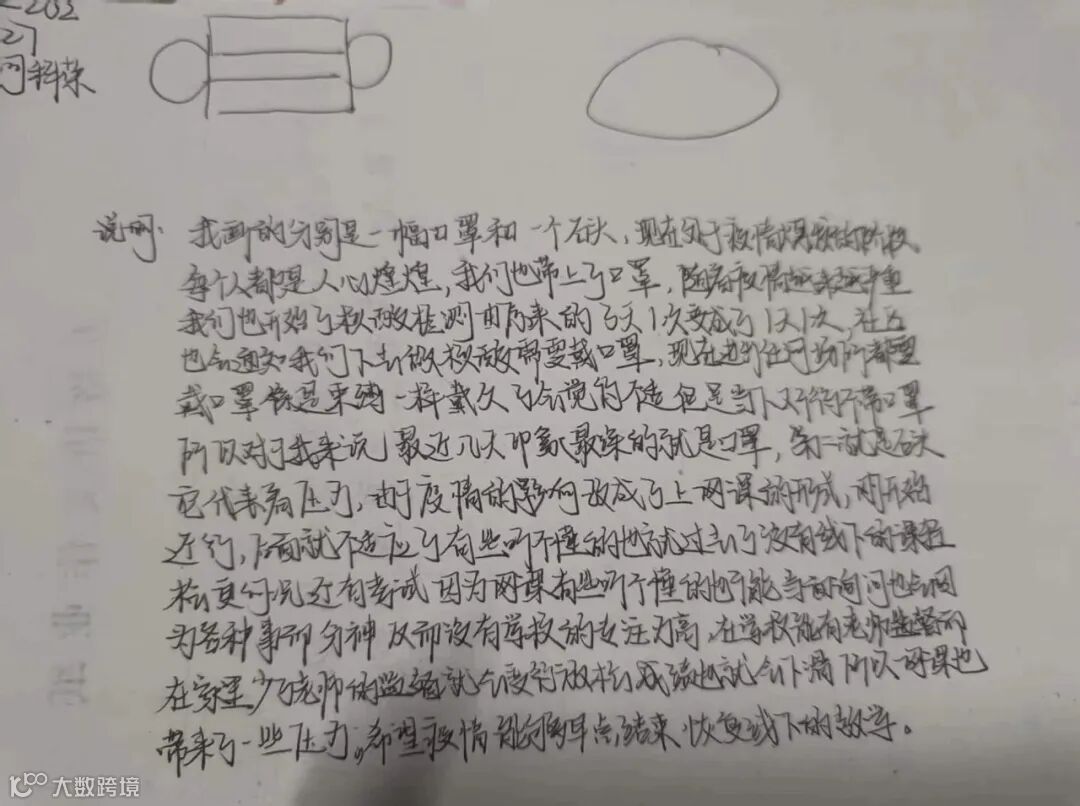 202
27
说明：我画的分别是一幅口罩和一个石头，现在处于疫情 的阶段
每个人都是人心煌煌，我们也带上了口罩，随着疫情越来越严重
我们也开始了核酸检测由原来的3天1次变成了1天1次，社区
也会通知我们下去做核酸需要戴口罩，现在进到任何场所都要
戴口罩像是束缚一样戴久了会觉的不适但是当下又不得不带口罩
所以对于我来说最近几天印象最深的就是口罩，第二就是石头
它代表着压力，由于疫情的影响改成了上网课的形式，刚开始
还行，后面就不适应了有些听不懂的也就过去了没有线下的课程
更何况还有考试因为网课有些听不懂的也不能当面询问也会因
为各种事而分神反而没有学校的专注力高，在学校能有老师监督而
在家里少了老师的监督就会变得放松成绩也就会下滑所以网课也
带来了一些压力。希望疫情能够早点结束恢复线下的教学。
大数跨境